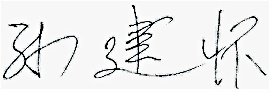 孙建怀